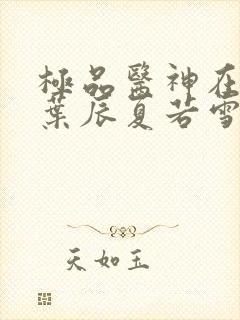 極品醫神在
葉辰夏若雪
天如玉